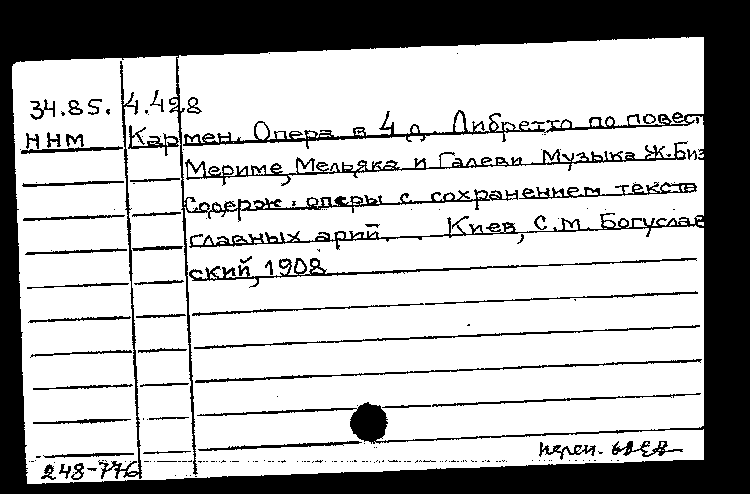 34.85.4.428
ННМ Кармен. Опера в 4 д. Либретто по повест
Мериме, Мельяка и Галеви Музыка Ж.Биз
Содерж. оперы с сохранением текста
главных арий. . Киев, С.М. Богуслав
ский, 1908
248-776
перен.